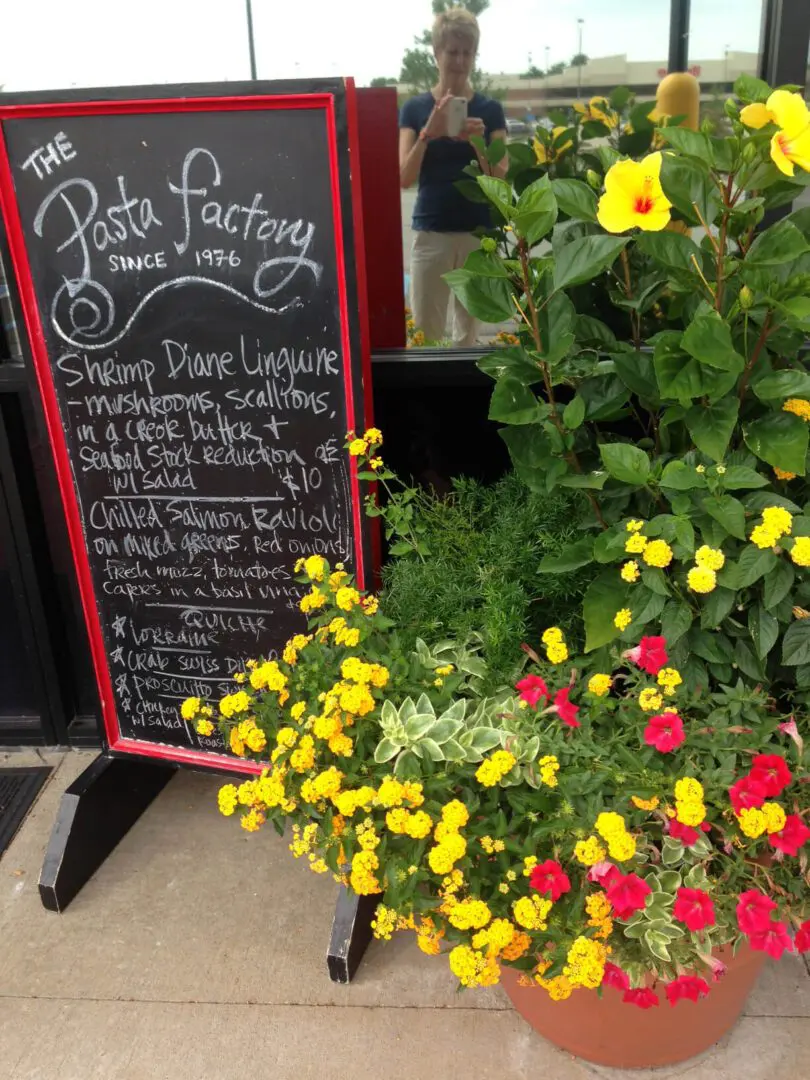 THE
Pasta Factory
SINCE 1976
Shrimp Diane Linguine
- mushrooms, scallions,
in a creole butter +
seafood stock reduction
w/ salad $10
Chilled Salmon Ravioli
on mixed greens, red onions
fresh mozz, tomatoes
capers in a basil
QUICHE
* Lorraine
* Crab swiss
* Proscuitto
* 
w/ salad